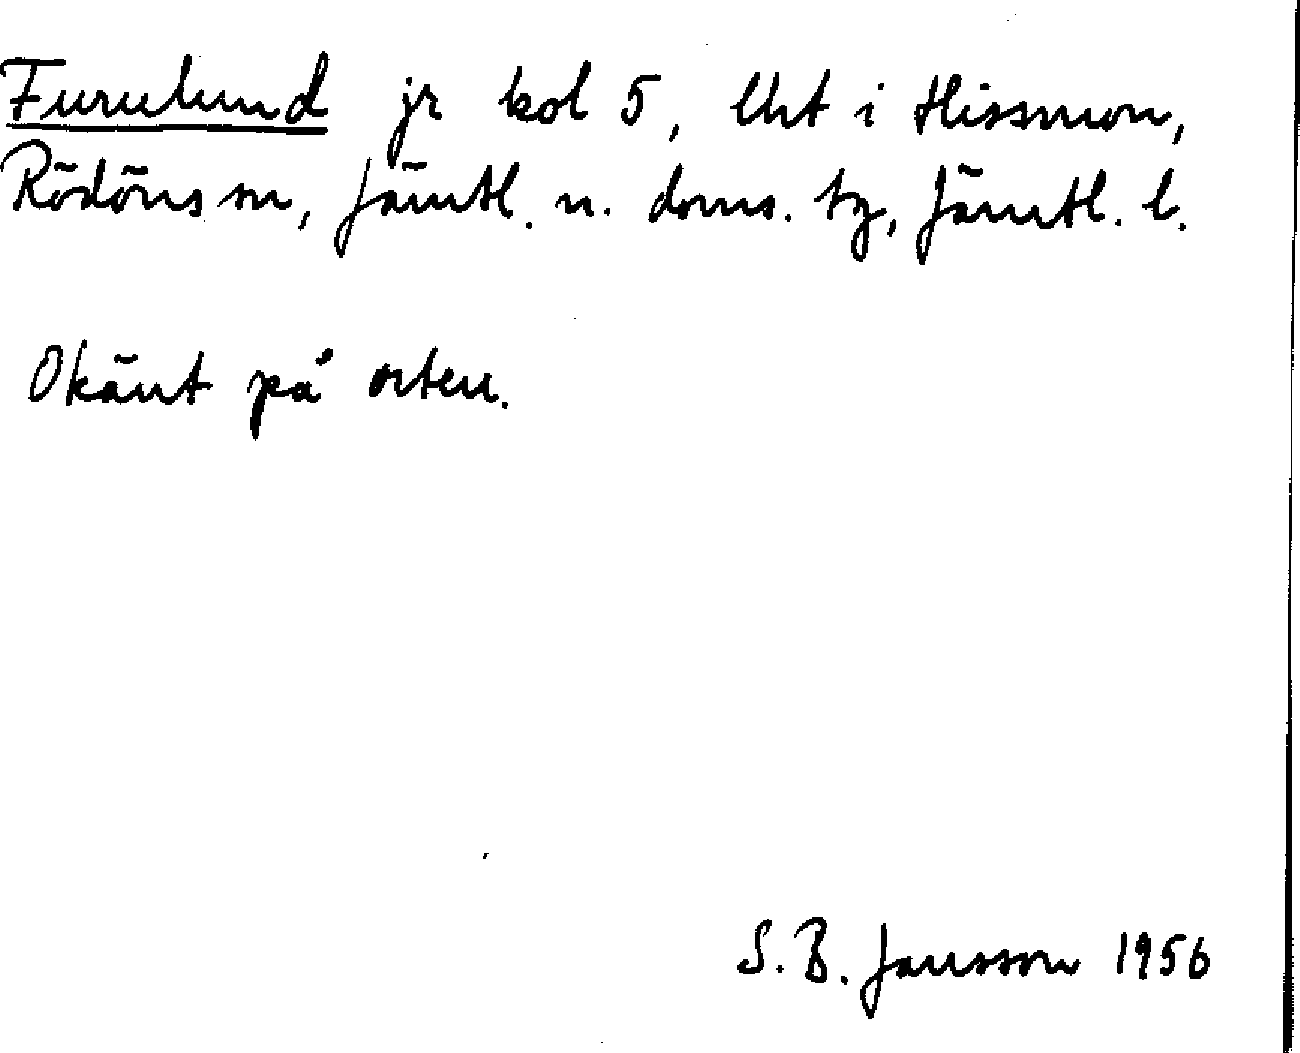 Furulund jr kol 5, lht i Hissmon,
Rödöns sn, Jämtl. n. doms. tg, Jämtl. l.
Okänt på orten.
S. B. Jansson 1956